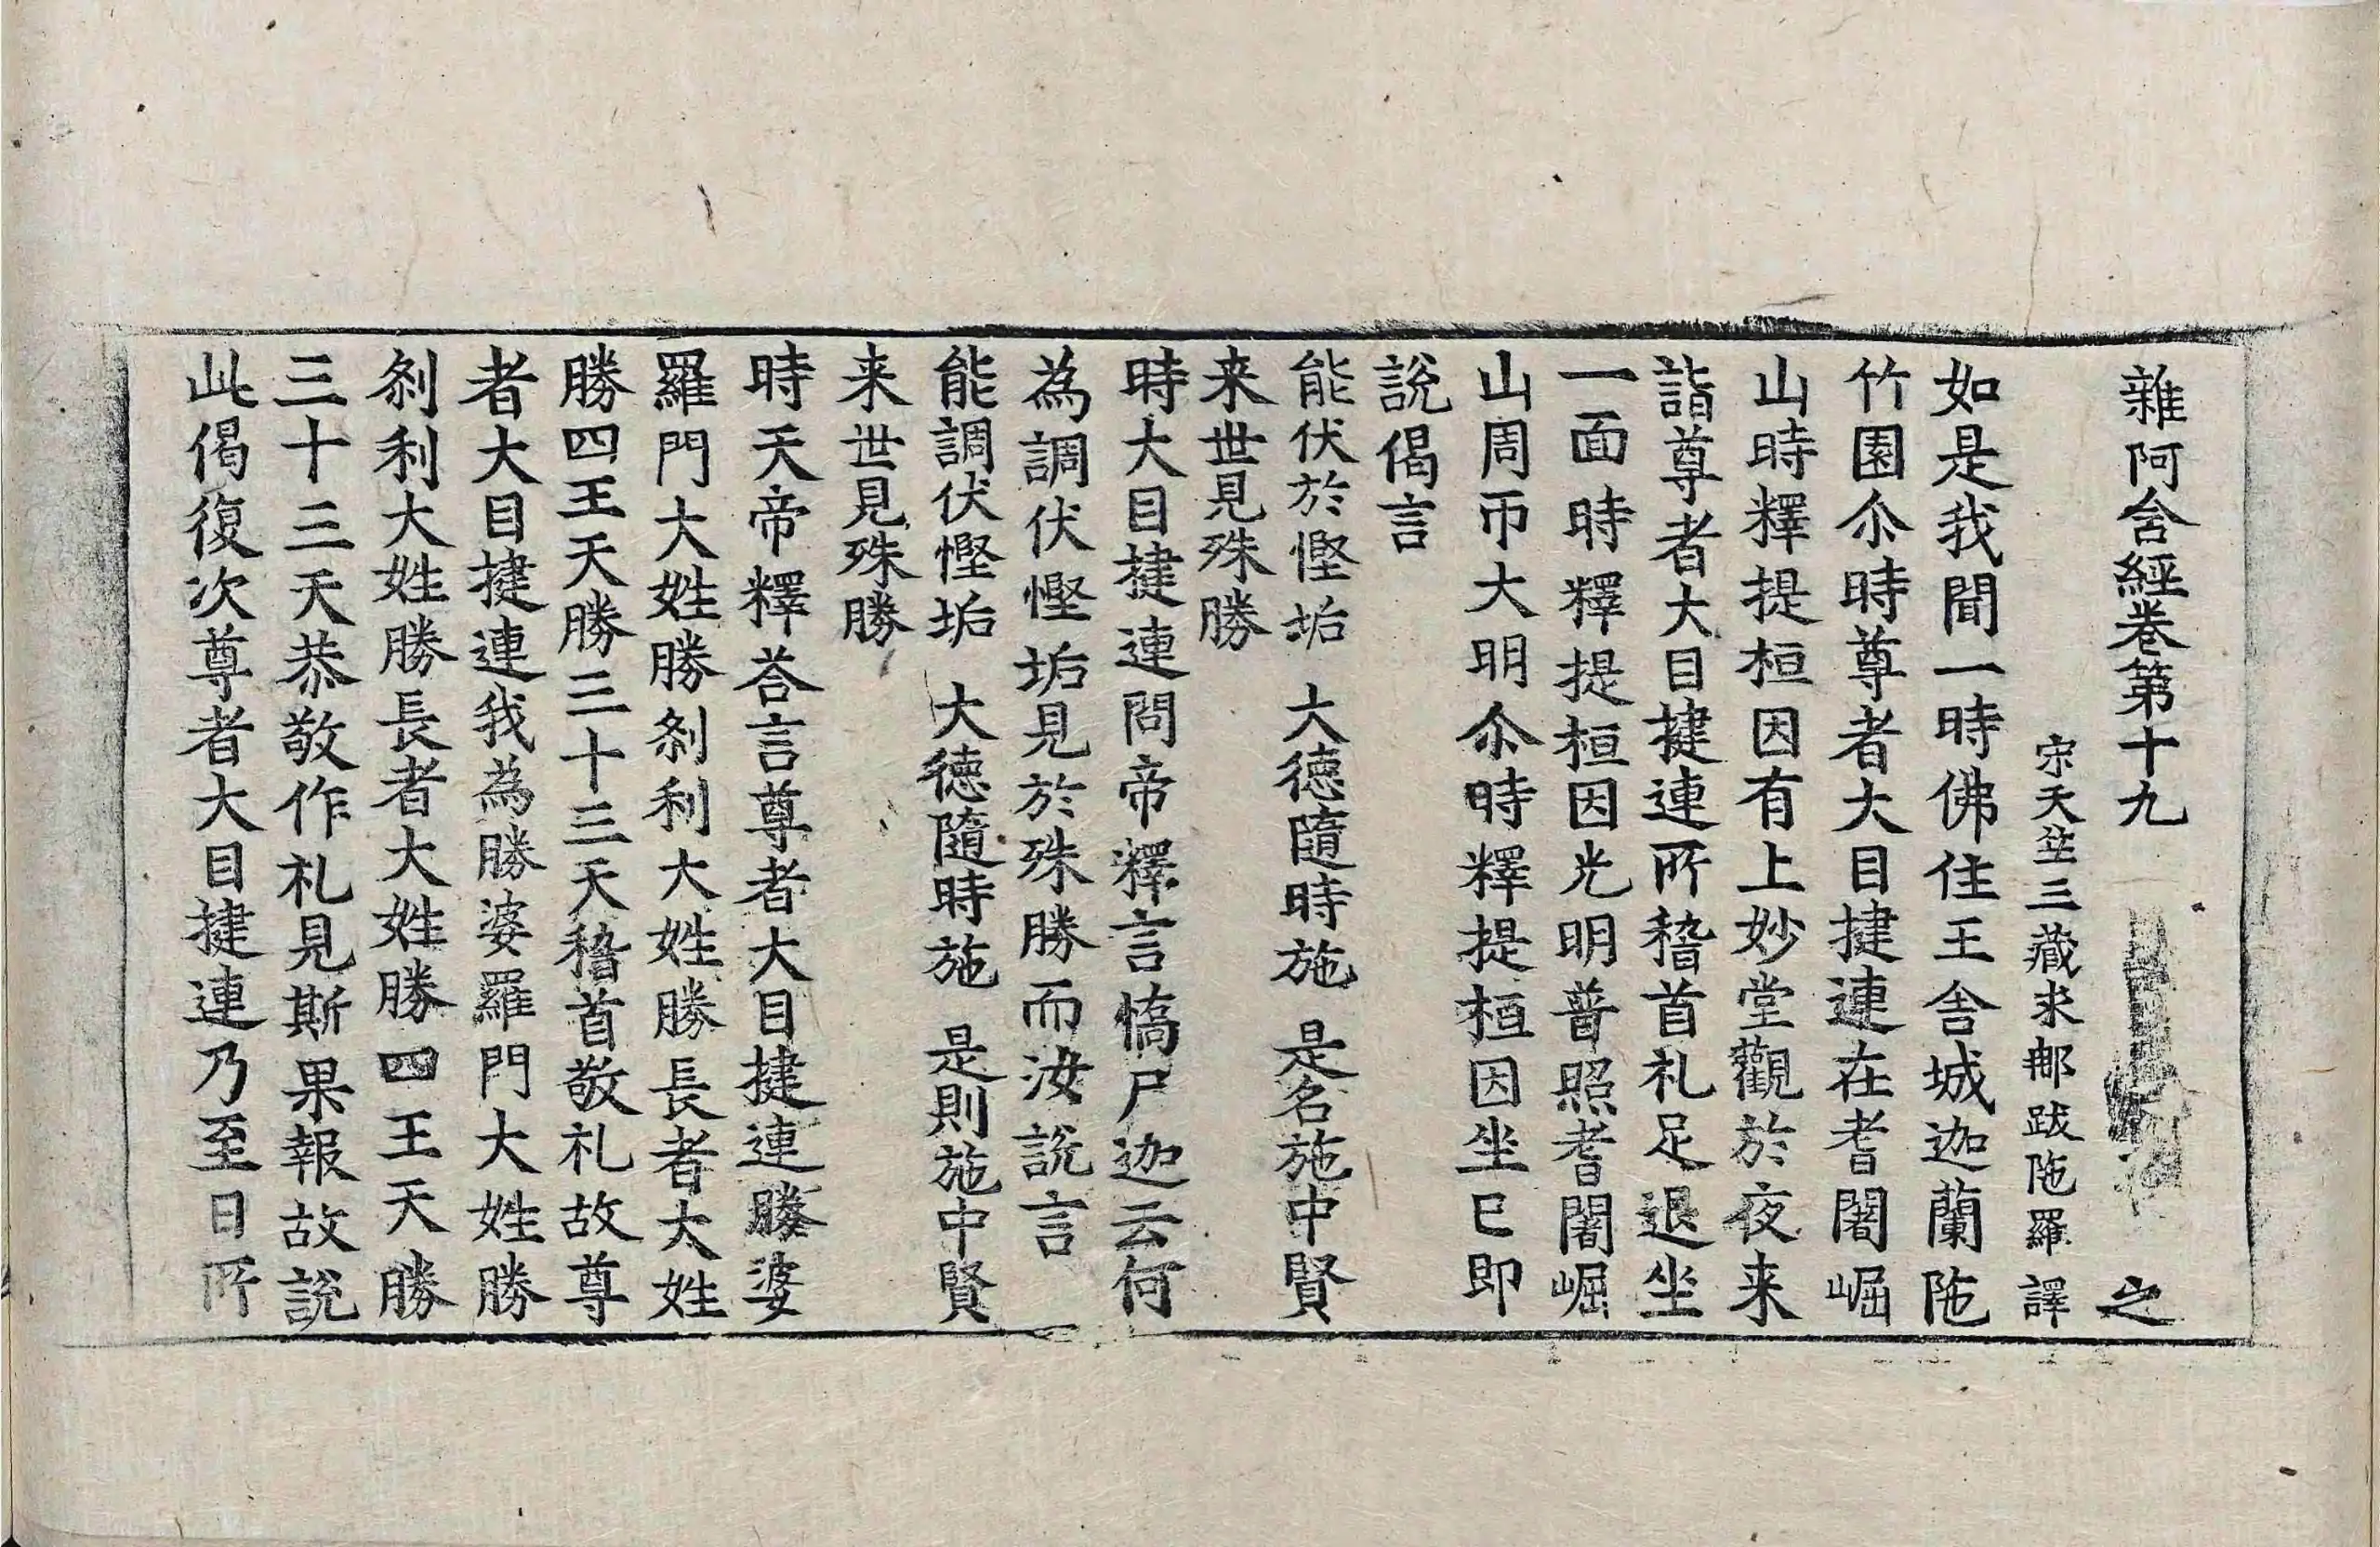 雜阿含經卷第十九 之
宋天竺三藏求那跋陁羅 譯
如是我聞一時佛住王舍城迦蘭陁
竹園尒時尊者大目揵連在耆闍崛
山時釋提桓因有上妙堂觀於夜来
詣尊者大目揵連所稽首礼足退坐
一面時釋提桓因光明普照耆闍崛
山周帀大明尒時釋提桓因坐已即
說偈言
能伏於慳垢 大德隨時施 是名施中賢
来世見殊勝
時大目揵連問帝釋言憍尸迦云何
為調伏慳垢見於殊勝而汝說言
能調伏慳垢 大德隨時施 是則施中賢
来世見殊勝
時天帝釋荅言尊者大目揵連勝婆
羅門大姓勝刹利大姓勝長者大姓
勝四王天勝三十三天稽首敬礼故尊
者大目揵連我為勝婆羅門大姓勝
刹利大姓勝長者大姓勝四王天勝
三十三天恭敬作礼見斯果報故說
此偈復次尊者大目揵連乃至日所